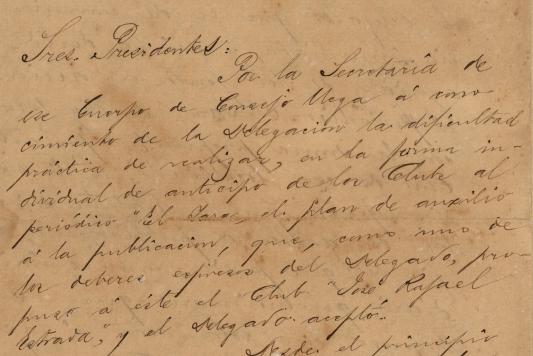 Sres. Presidentes:
Por la Secretaría de
ese Cuerpo de Consejo llega á cono-
cimiento de la Delegacion la dificultad
práctica de realizar, en la forma in-
dividual de anticipo de los Clubs al
periódico "El Paso", el plan de auxilio
á la publicacion, que, como uno de
los deberes expresos del Delegado, pro-
puso á éste el Club "José Rafael
Estrada", y el Delegado aceptó.
Desde el principio